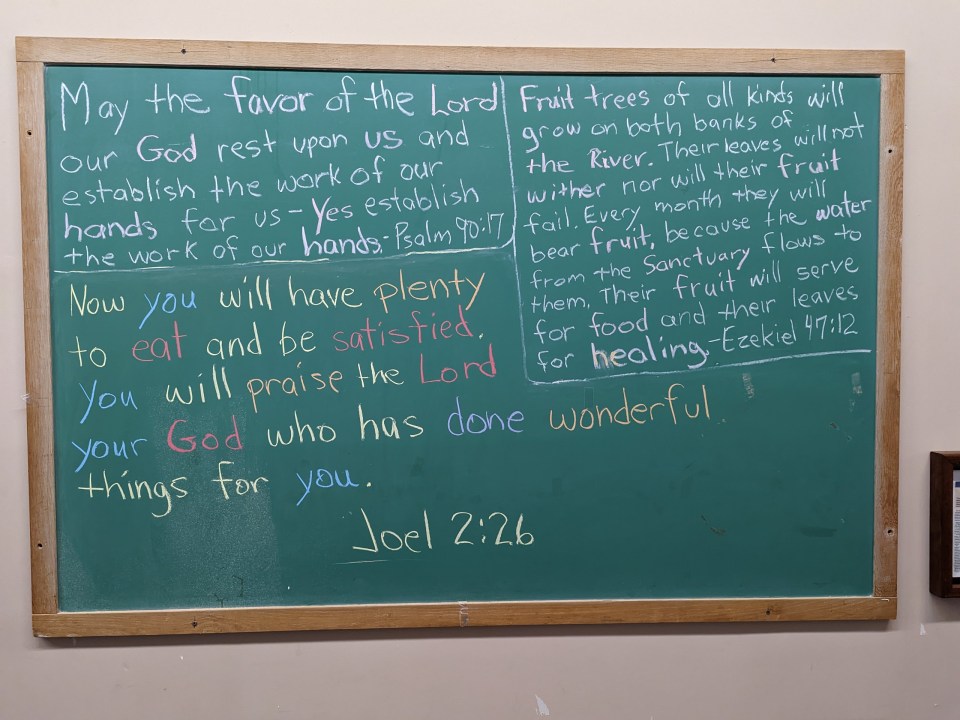 May the favor of the Lord
our God rest upon us and
establish the work of our
hands for us - Yes establish
the work of our hands. - Psalm 90:17
Fruit trees of all kinds will
grow on both banks of
the River. Their leaves will not
wither nor will their fruit
fail. Every month they will
bear fruit, because the water
from the Sanctuary flows to
them. Their fruit will serve
for food and their leaves
for healing. - Ezekiel 47:12
Now you will have plenty
to eat and be satisfied.
You will praise the Lord
your God who has done wonderful
things for you.
Joel 2:26